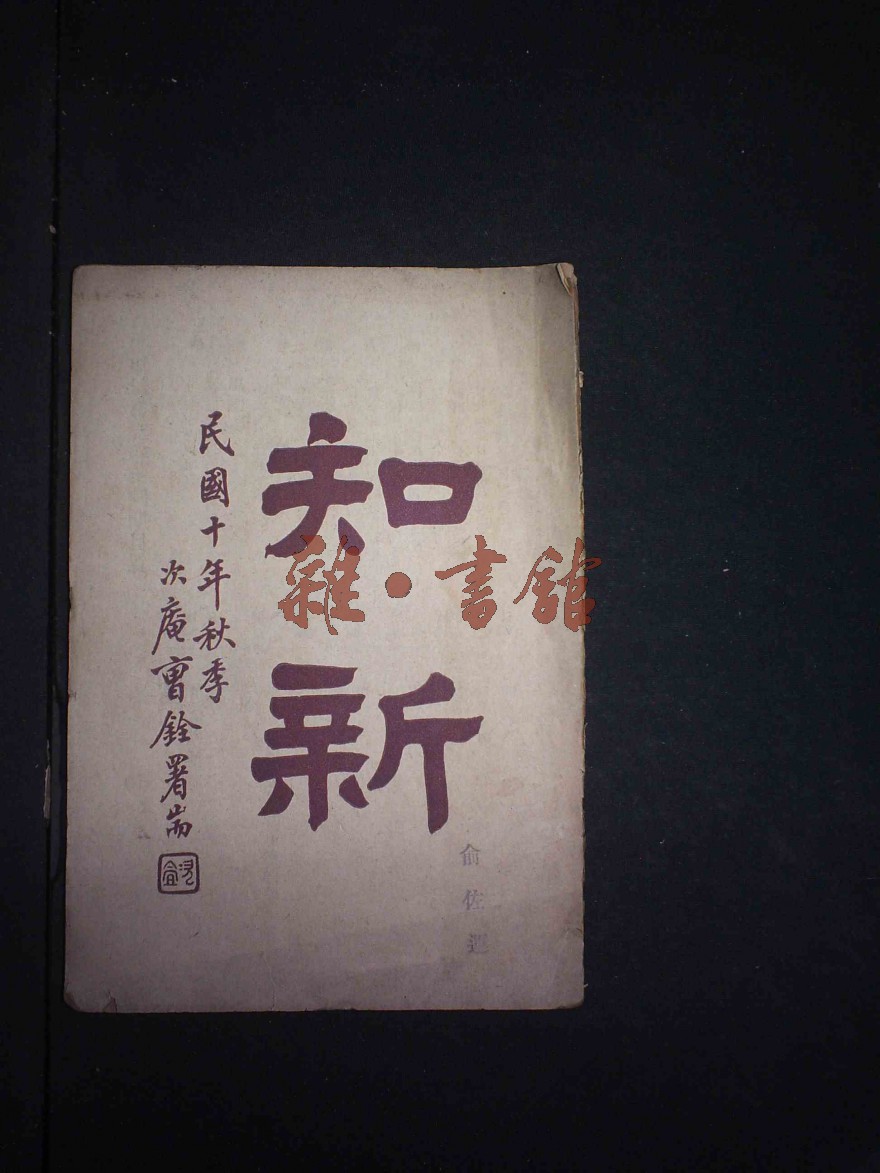 知新
民國十年秋季
次庵曹銓署耑
俞佐
雜·書館